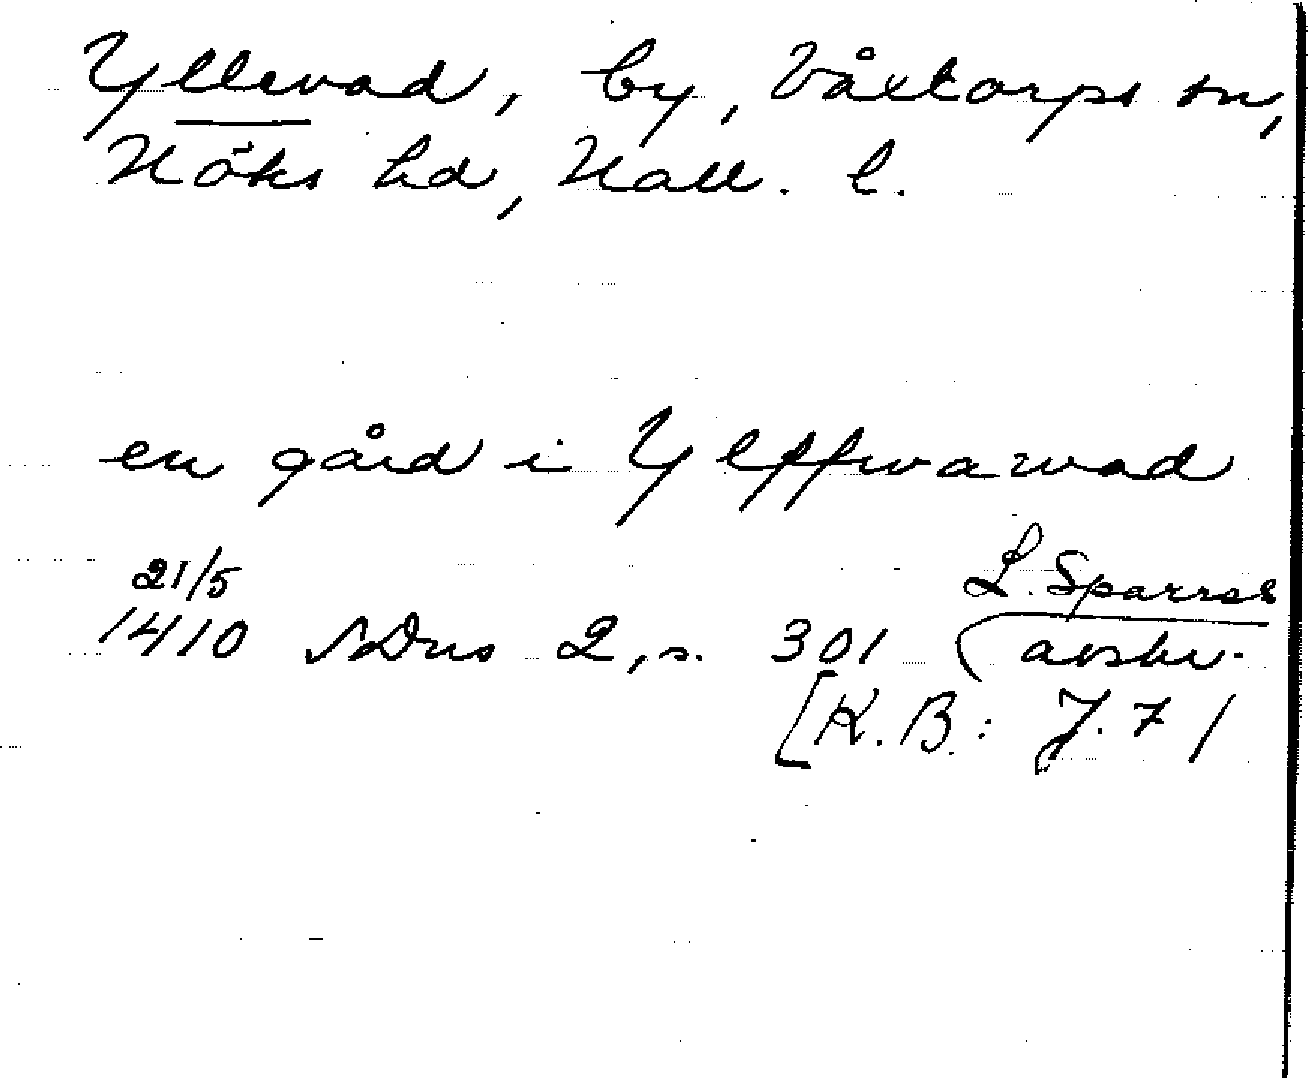 Yllevad, by, Våxtorps sn,
Höks hd, Hall. l.
en gård i Ylffwarwad
21/5
1410 SDns 2, s. 301 (L. Sparres
avskr.
[K.B: J. 7/